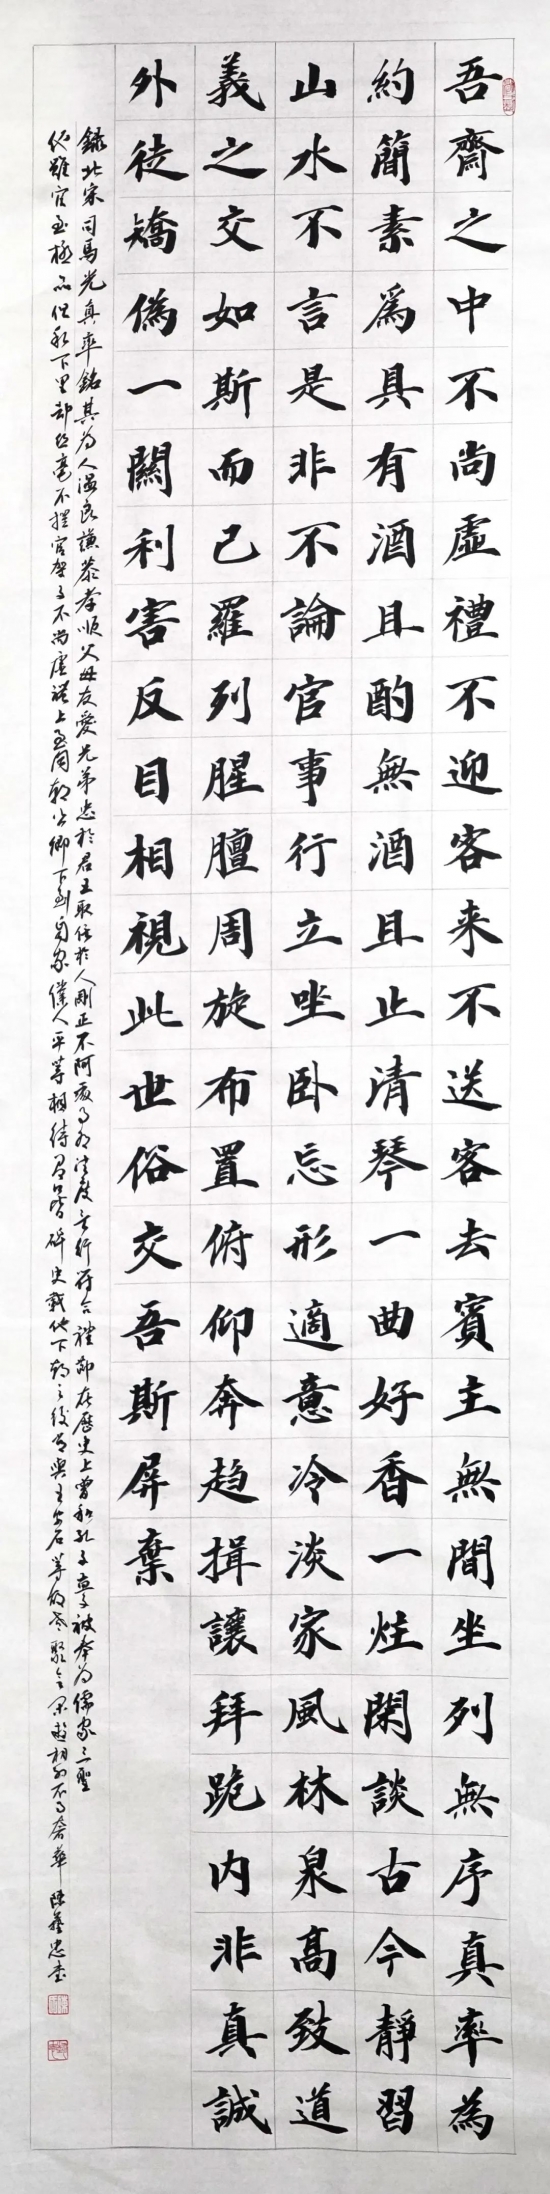 吾齋之中不尚虛禮不迎客来不送客去賓主無間坐列無序真率為
約簡素為具有酒且酌無酒且止清琴一曲好香一炷閑談古今靜習
山水不言是非不論官事行立坐卧忘形適意冷淡家風林泉高致道
義之交如斯而已羅列腥膻周旋布置俯仰奔趋揖讓拜跪内非真誠
外徒矯偽一關利害反目相視此世俗交吾斯屏棄
錄北宋司馬光真率銘其为人温良謙恭孝順父母友愛兄弟忠於君王取信於人剛正不阿
在歷史上曾和孔子孟子被奉为儒家三聖
不尚虛礼上至同朝公卿下到
平等相待